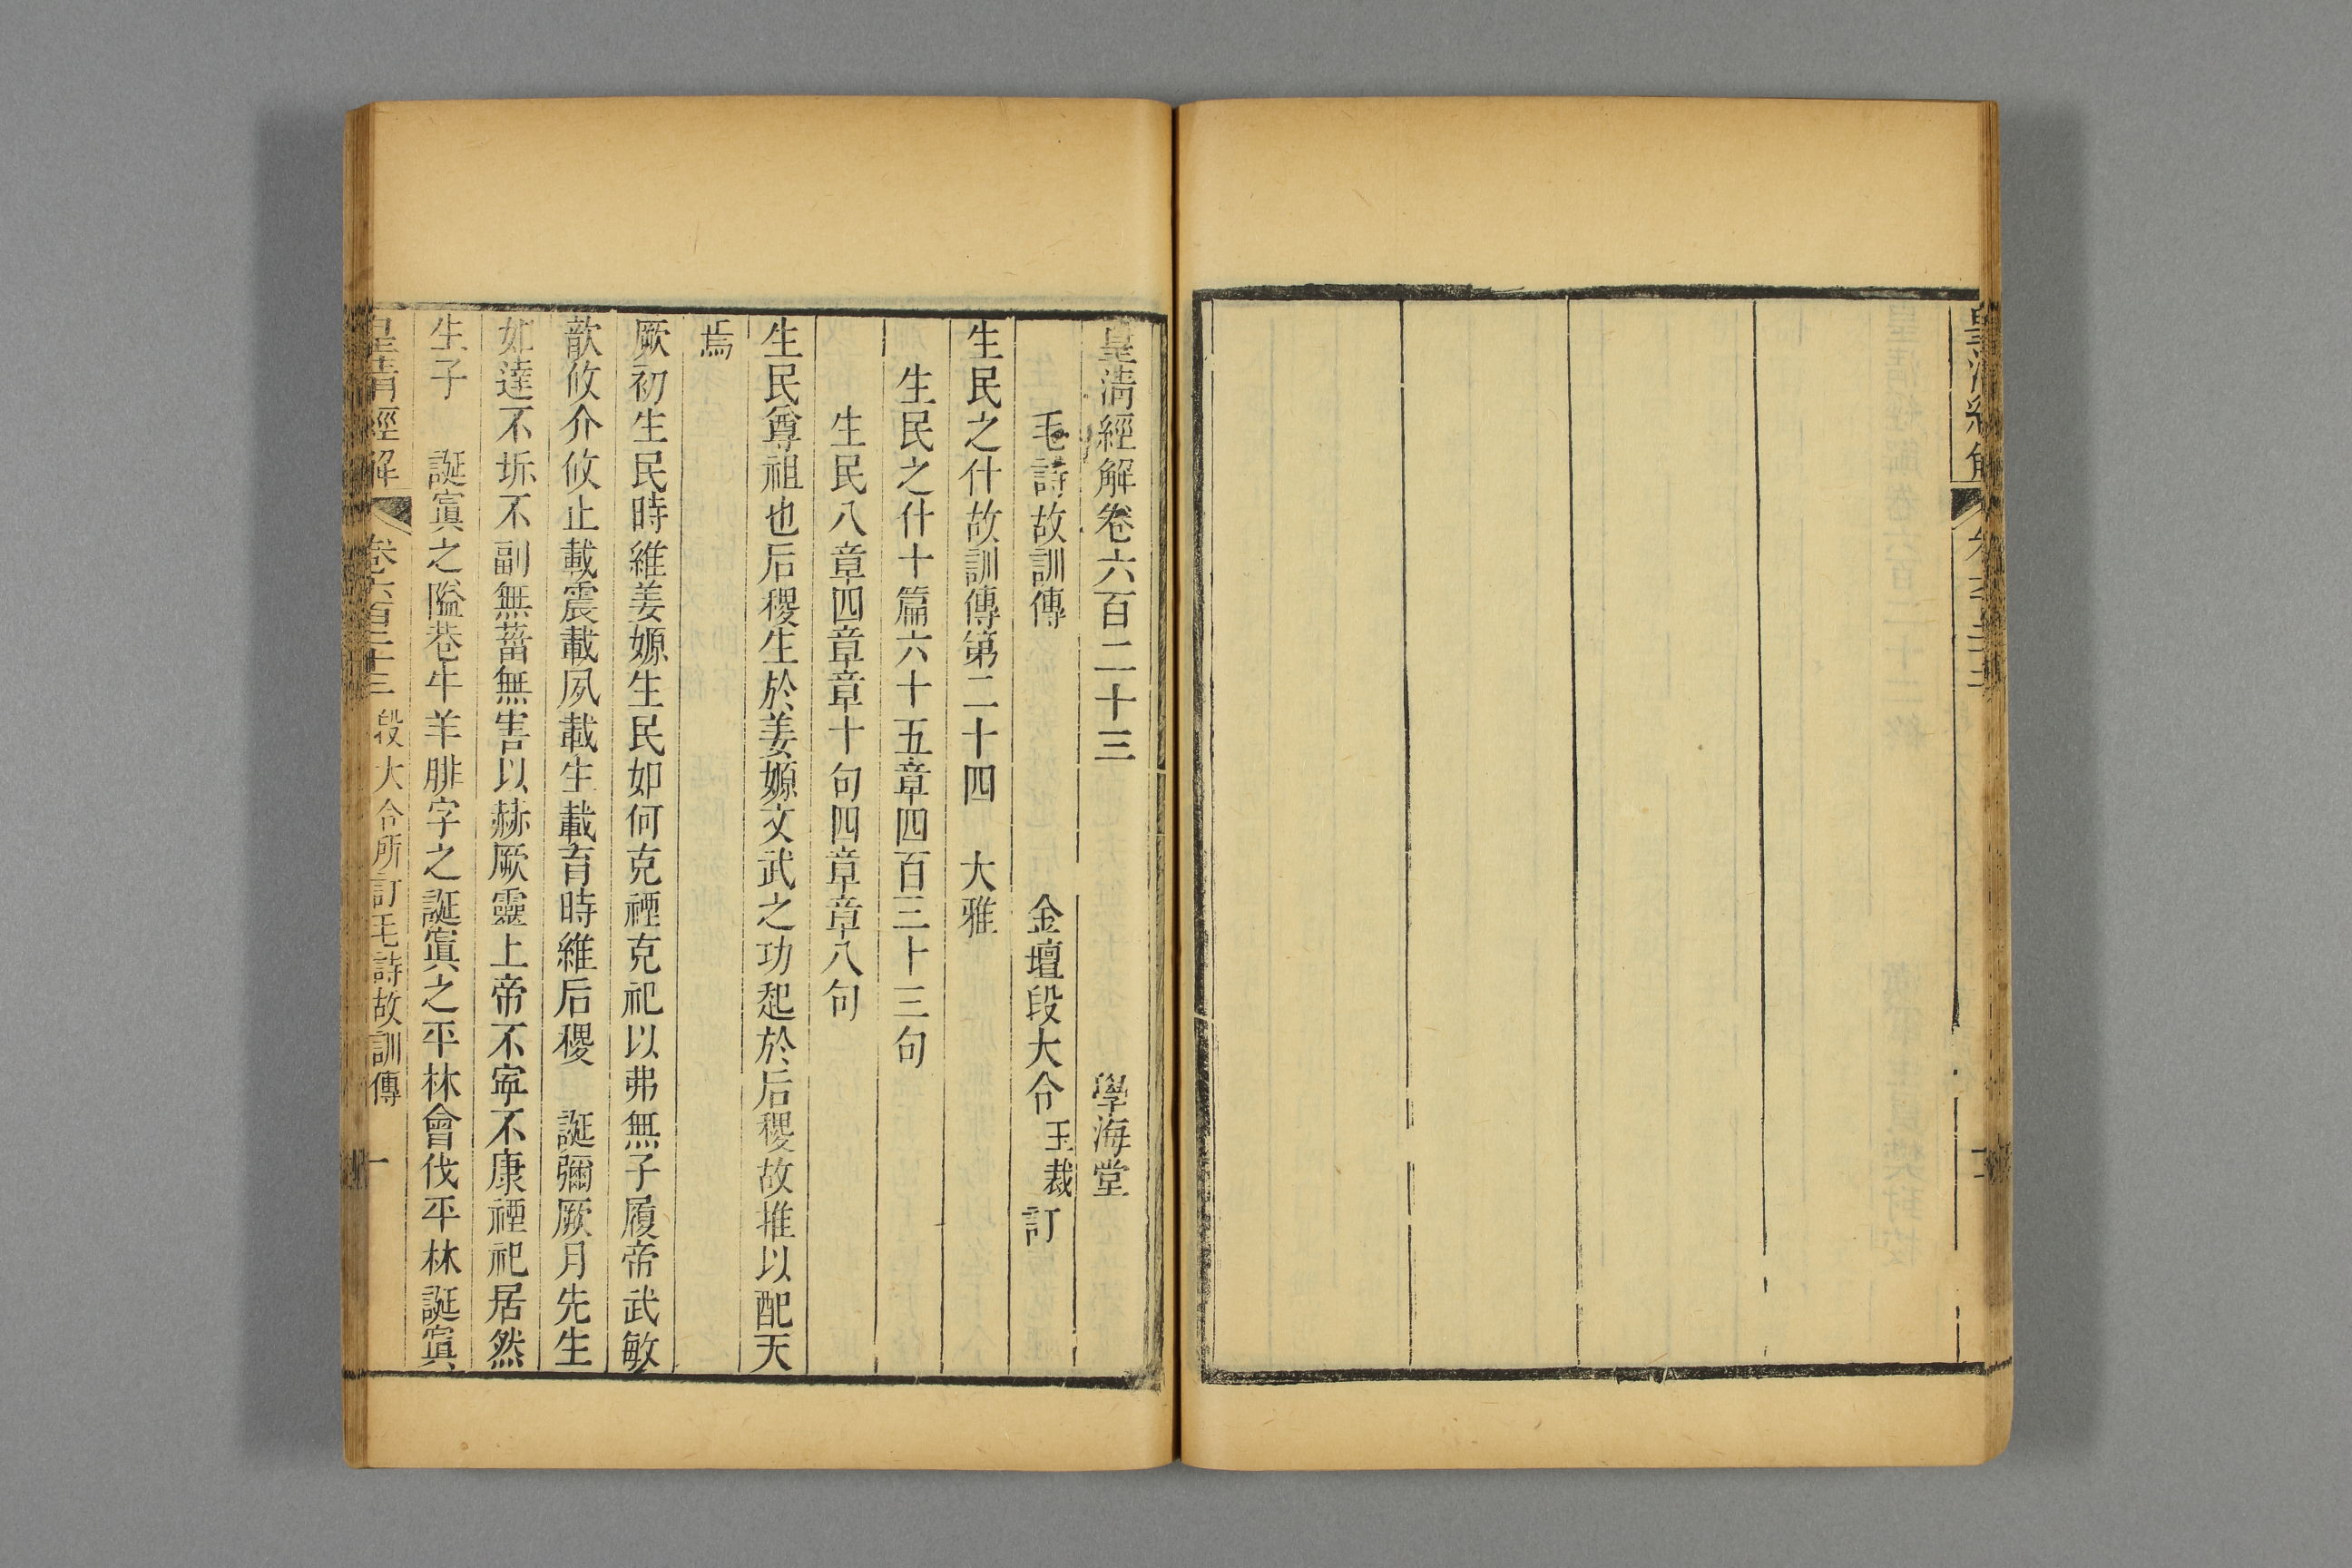 皇清經解卷六百二十三　學海堂
毛詩故訓傳　金壇段大令玉裁訂
生民之什故訓傳第二十四　大雅
生民之什十篇六十五章四百三十三句
生民八章四章章十句四章章八句
生民尊祖也后稷生於姜嫄文武之功起於后稷故推以配天
焉
厥初生民時維姜嫄生民如何克禋克祀以弗無子履帝武敏
歆攸介攸止載震載夙載生載育時維后稷　誕彌厥月先生
如達不坼不副無菑無害以赫厥靈上帝不寍不康禋祀居然
生子　誕寘之隘巷牛羊腓字之誕寘之平林會伐平林誕寘
皇清經解　卷六百二十三　段大令所訂毛詩故訓傳　一